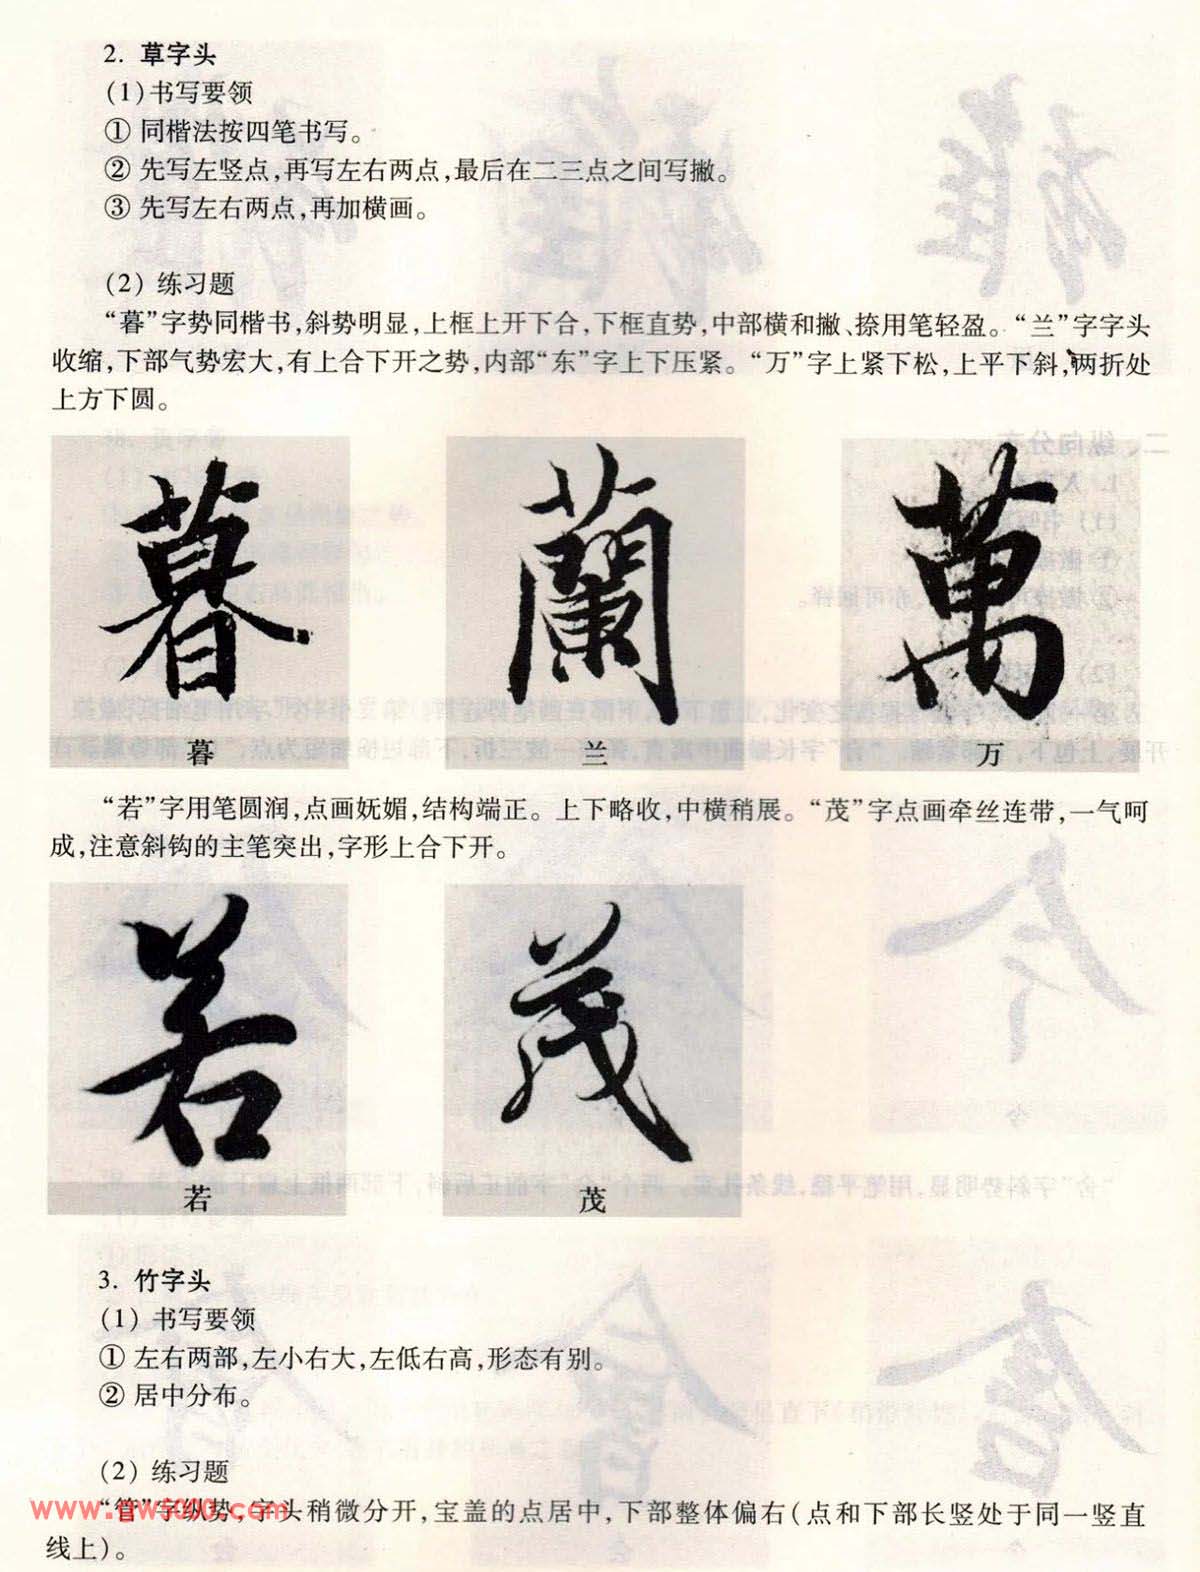 2. 草字头
(1)书写要领
① 同楷法按四笔书写。
② 先写左竖点,再写左右两点,最后在二三点之间写撇。
③ 先写左右两点,再加横画。
(2) 练习题
“暮”字势同楷书,斜势明显,上框上开下合,下框直势,中部横和撇、捺用笔轻盈。“兰”字字头
收缩,下部气势宏大,有上合下开之势,内部“东”字上下压紧。“万”字上紧下松,上平下斜,两折处
上方下圆。
暮 蘭 萬
暮 兰 万
“若”字用笔圆润,点画妩媚,结构端正。上下略收,中横稍展。“茂”字点画牵丝连带,一气呵
成,注意斜钩的主笔突出,字形上合下开。
若 茂
若 茂
3. 竹字头
(1) 书写要领
① 左右两部,左小右大,左低右高,形态有别。
② 居中分布。
(2) 练习题
“管”字纵势,字头稍微分开,宝盖的点居中,下部整体偏右(点和下部长竖处于同一竖直
线上)。